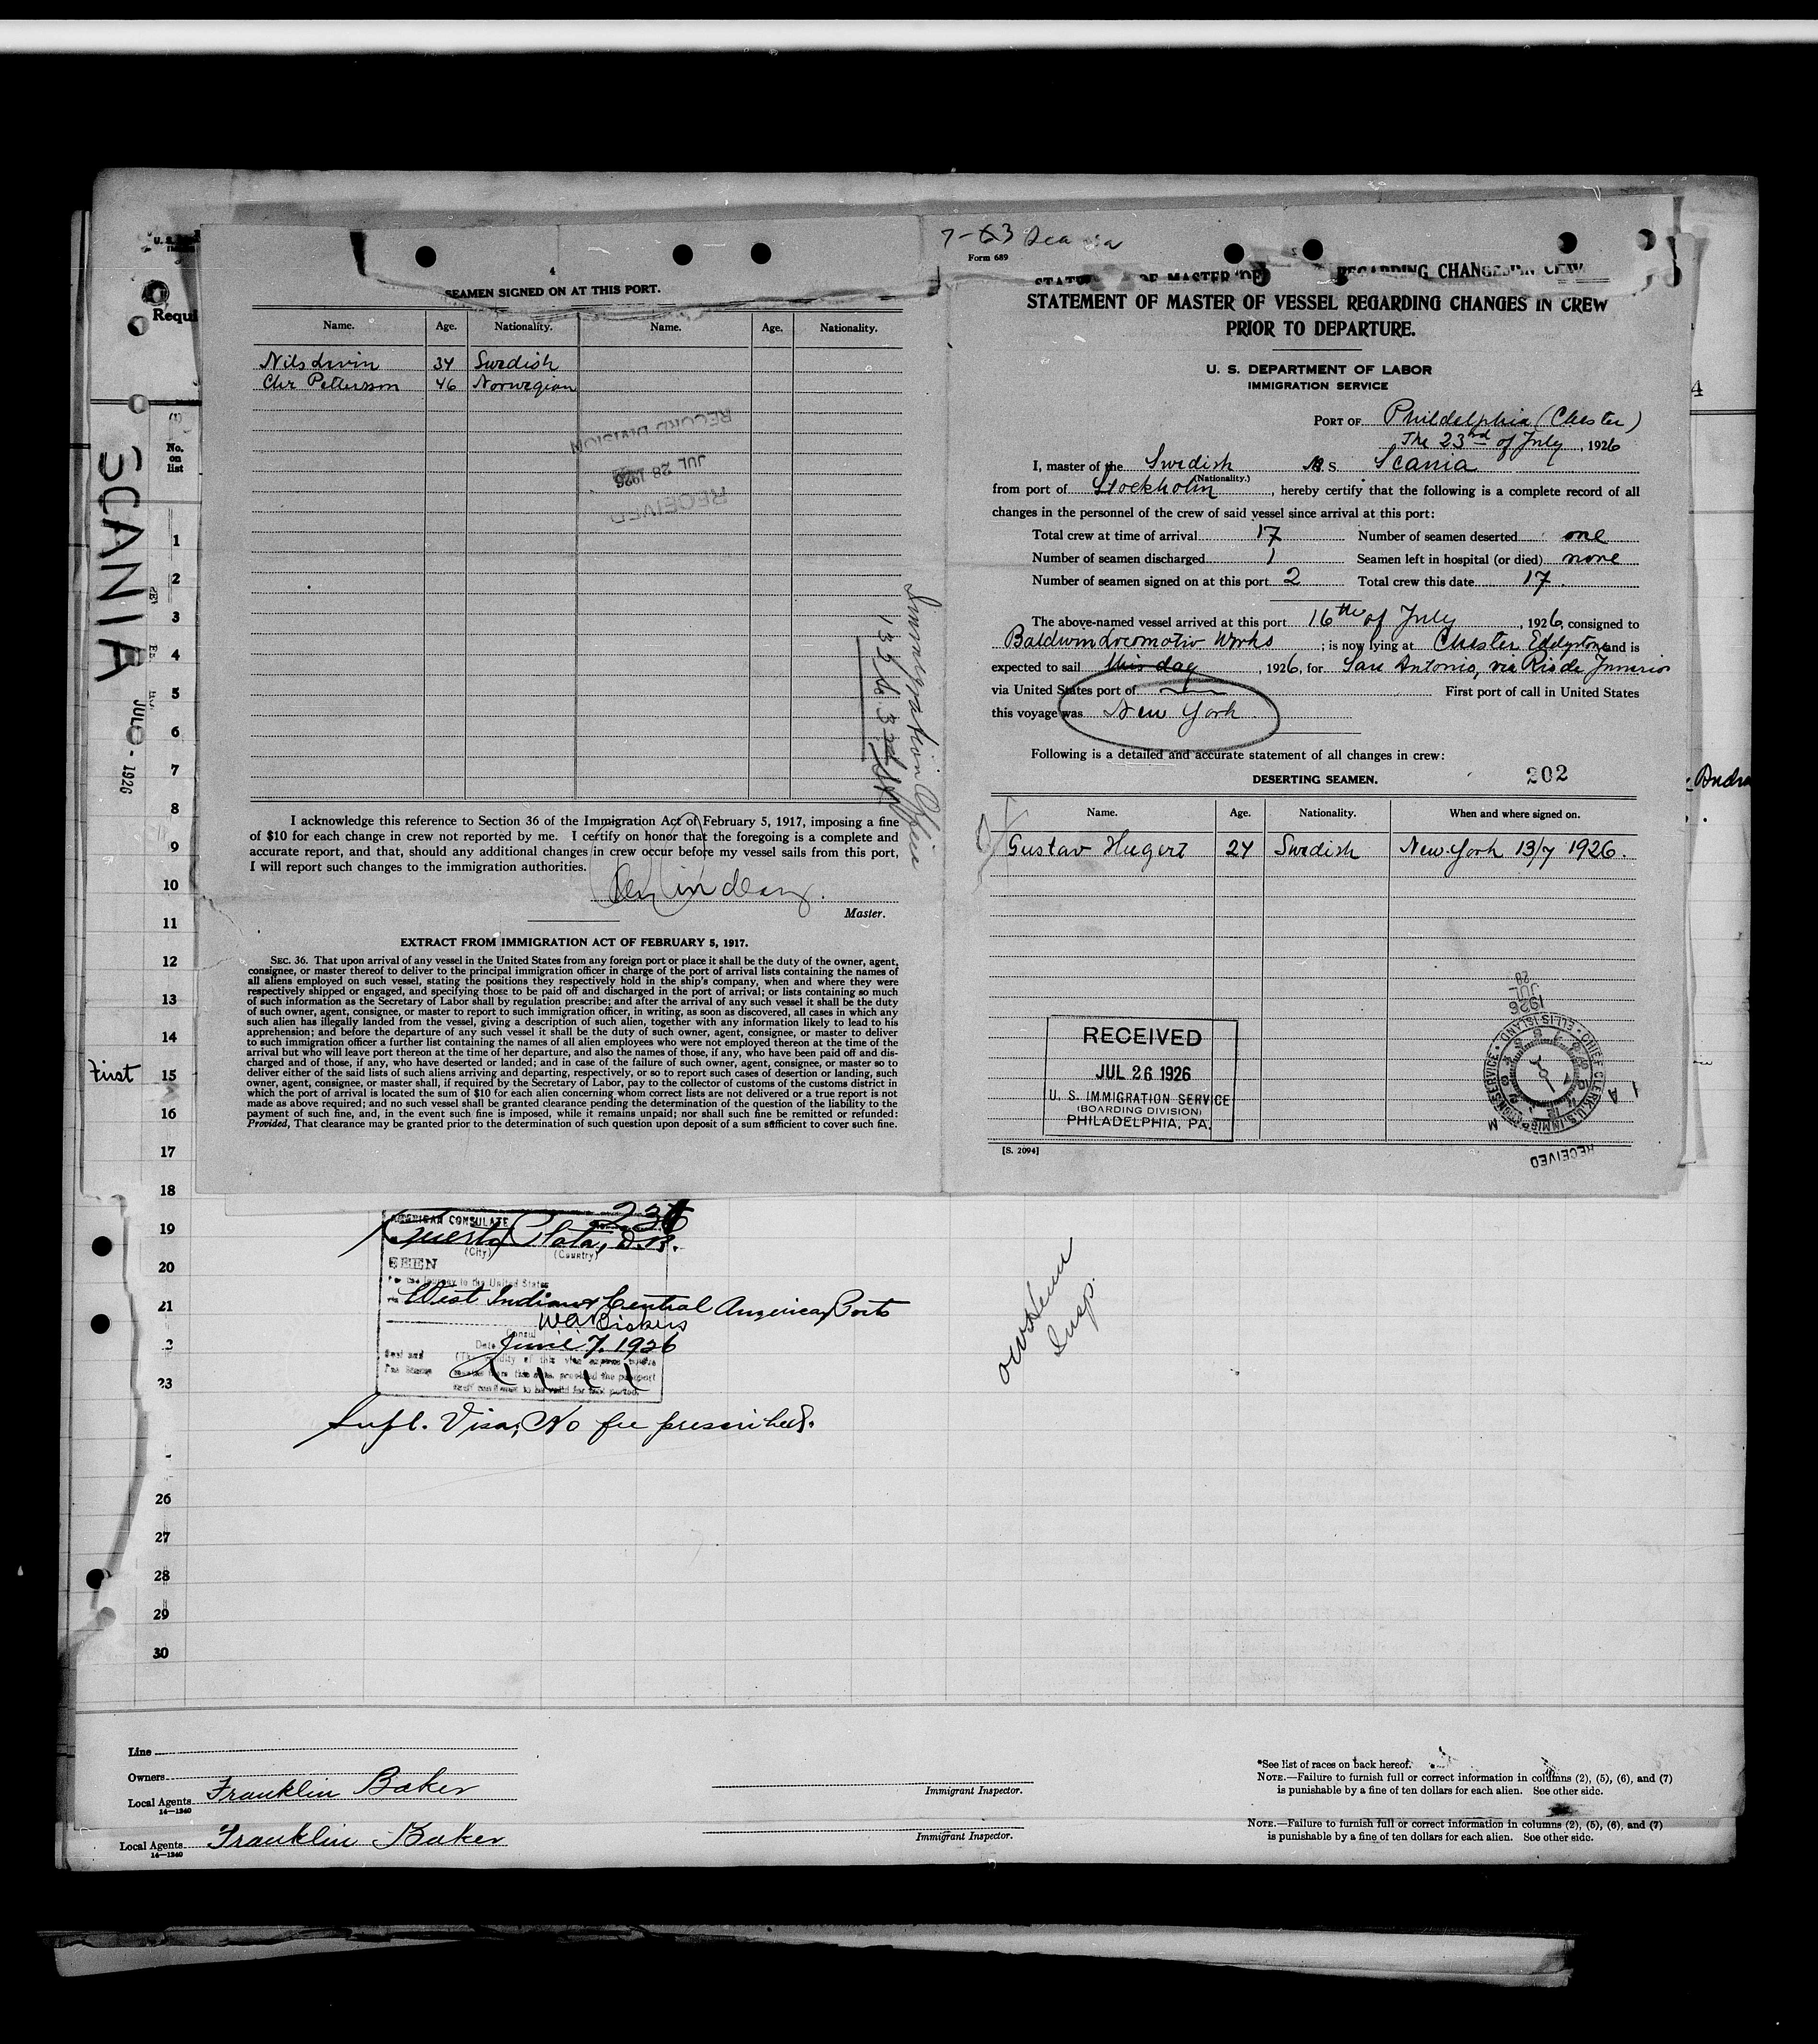 4
SEAMEN SIGNED ON AT THIS PORT.
Name. Age. Nationality. Name. Age. Nationality.
Nils 34 Swedish
Chr Pettersson 46 Norwegian
RECORD DIVISION
JUL 28 1926
RECEIVED
Immigration Office
I acknowledge this reference to Section 36 of the Immigration Act of February 5, 1917, imposing a fine
of $10 for each change in crew not reported by me. I certify on honor that the foregoing is a complete and
accurate report, and that, should any additional changes in crew occur before my vessel sails from this port,
I will report such changes to the immigration authorities.
Master.
EXTRACT FROM IMMIGRATION ACT OF FEBRUARY 5, 1917.
SEC. 36. That upon arrival of any vessel in the United States from any foreign port or place it shall be the duty of the owner, agent,
consignee, or master thereof to deliver to the principal immigration officer in charge of the port of arrival lists containing the names of
all aliens employed on such vessel, stating the positions they respectively hold in the ship's company, when and where they were
respectively shipped or engaged, and specifying those to be paid off and discharged in the port of arrival; or lists containing so much
of such information as the Secretary of Labor shall by regulation prescribe; and after the arrival of any such vessel it shall be the duty
of such owner, agent, consignee, or master to report to such immigration officer, in writing, as soon as discovered, all cases in which any
such alien has illegally landed from the vessel, giving a description of such alien, together with any information likely to lead to his
apprehension; and before the departure of any such vessel it shall be the duty of such owner, agent, consignee, or master to deliver
to such immigration officer a further list containing the names of all alien employees who were not employed thereon at the time of the
arrival but who will leave port thereon at the time of her departure, and also the names of those, if any, who have been paid off and dis-
charged and of those, if any, who have deserted or landed; and in case of the failure of such owner, agent, consignee, or master so to
deliver either of the said lists of such aliens arriving and departing, respectively, or so to report such cases of desertion or landing, such
owner, agent, consignee, or master shall, if required by the Secretary of Labor, pay to the collector of customs of the customs district in
which the port of arrival is located the sum of $10 for each alien concerning whom correct lists are not delivered or a true report is not
made as above required; and no such vessel shall be granted clearance pending the determination of the question of the liability to the
payment of such fine, and, in the event such fine is imposed, while it remains unpaid; nor shall such fine be remitted or refunded:
Provided, That clearance may be granted prior to the determination of such question upon deposit of a sum sufficient to cover such fine.
7-63 Scania
Form 689
REGARDING CHANGES IN CREW
STATEMENT OF MASTER OF VESSEL REGARDING CHANGES IN CREW
PRIOR TO DEPARTURE.
U. S. DEPARTMENT OF LABOR
IMMIGRATION SERVICE
PORT OF Phildelphia (Chester)
The 23rd of July, 1926
I, master of the Swedish M. S. Scania
(Nationality.)
from port of Stockholm, hereby certify that the following is a complete record of all
changes in the personnel of the crew of said vessel since arrival at this port:
Total crew at time of arrival 17 Number of seamen deserted one
Number of seamen discharged 1 Seamen left in hospital (or died) none
Number of seamen signed on at this port 2 Total crew this date 17.
The above-named vessel arrived at this port 16th of July, 1926, consigned to
Baldwin Locomotiv Works; is now lying at Chester Eddystone and is
expected to sail this day, 1926, for San Antonio, via Rio de Janeiro
via United States port of First port of call in United States
this voyage was New York
Following is a detailed and accurate statement of all changes in crew:
DESERTING SEAMEN. 202
Name. Age. Nationality. When and where signed on.
Gustav Hugert 24 Swedish New York 13/7 1926.
RECEIVED
JUL 26 1926
U. S. IMMIGRATION SERVICE
(BOARDING DIVISION)
PHILADELPHIA, PA.
1926
JUL
28
CHIEF CLERK U.S. IMMIGRATION SERVICE ELLIS ISLAND
RECEIVED
[S. 2094]
Requi
No.
on
list
SCANIA
JUL - 1926
1
2
3
4
5
6
7
8
9
10
11
12
13
14
First 15
16
17
18
19
20
21
23
26
27
28
29
30
AMERICAN CONSULATE
Puerto Plata, D.R.
(City) (Country)
SEEN
For the journey to the United States
West Indian & Central American Ports
Consul
Date June 7, 1926
Supl. Visa, No fee prescribed.
Insp.
Line
Owners
Local Agents Franklin Baker
14—1240
Immigrant Inspector.
*See list of races on back hereof.
NOTE.—Failure to furnish full or correct information in columns (2), (5), (6), and (7)
is punishable by a fine of ten dollars for each alien. See other side.
Local Agents Franklin Baker
14—1240
Immigrant Inspector.
NOTE.—Failure to furnish full or correct information in columns (2), (5), (6), and (7)
is punishable by a fine of ten dollars for each alien. See other side.